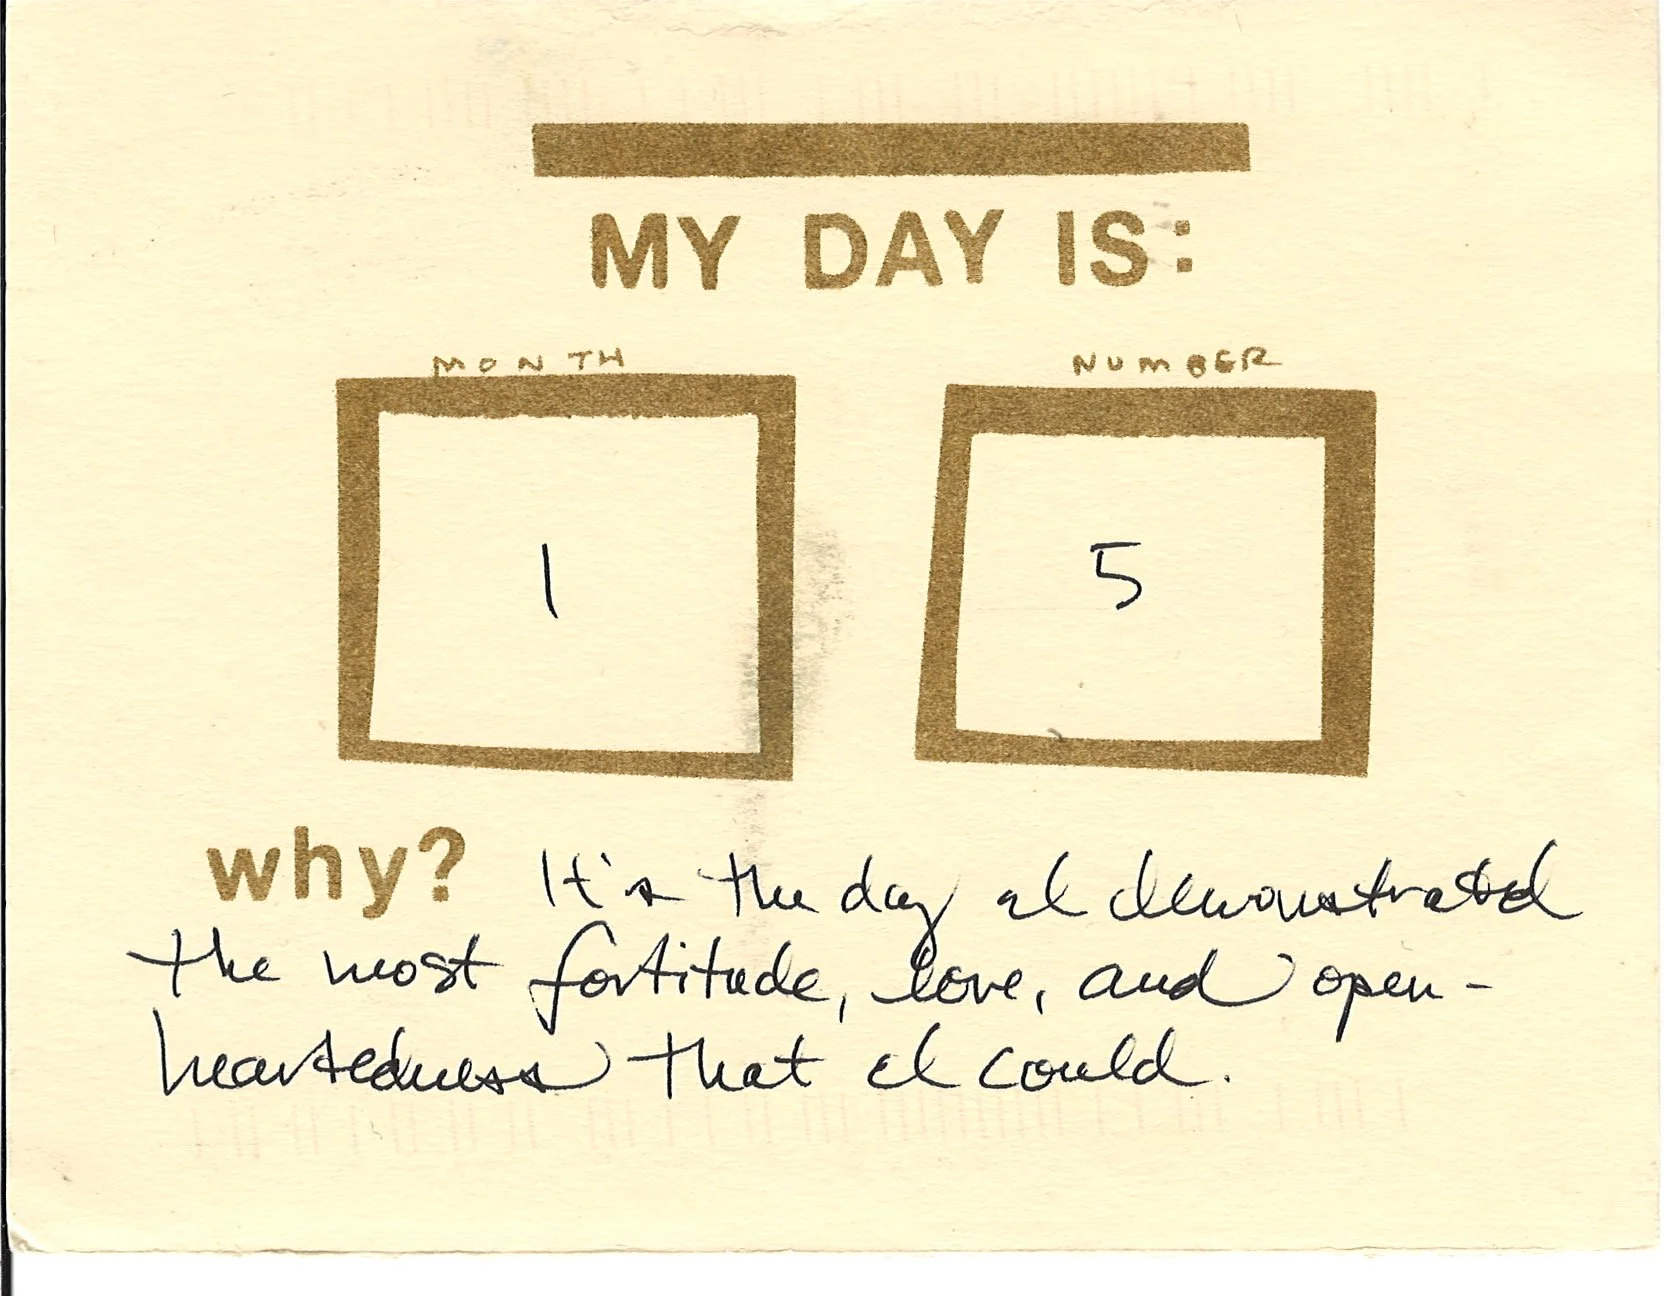 MY DAY IS:
MONTH NUMBER
1 5
why? It's the day I demonstrated
the most fortitude, love, and open-
heartedness that I could.